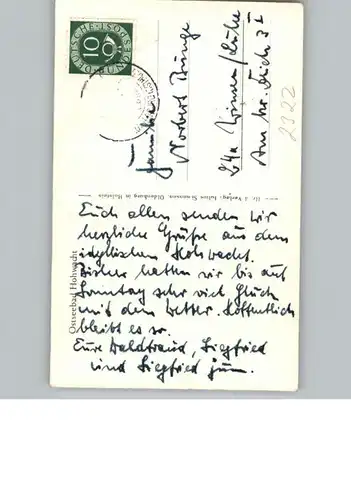 DEUTSCHE BUNDESPOST
10
Familie
Norbert Runge
24a Winsen/Luhe
Am
2322
Ostseebad Hohwacht
Verlag: Julius Simonsen, Oldenburg in Holstein
Euch allen senden wir
herzliche Grüße aus dem
idyllischen Hohwacht.
Bisher hatten wir bis auf
Sonntag sehr viel Glück
mit dem Wetter. Hoffentlich
bleibt es so.
Eure Waldtraud, Siegfried
und Siegfried jun.